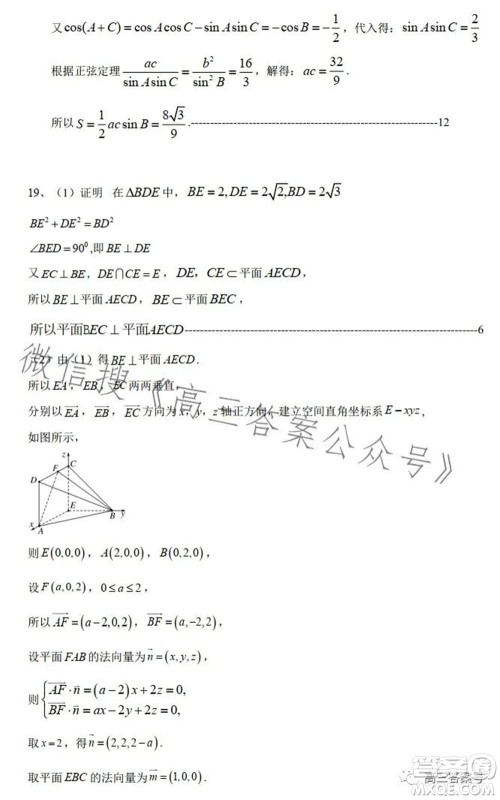 又cos(A+C)=cosAcosC−sinAsinC=−cosB=−1/2，代入得：sinAsinC=2/3
根据正弦定理 ac/(sinAsinC)=b²/sin²B=16/3，解得：ac=32/9．
所以S=1/2 acsinB=8√3/9．------------------------------------------------------------12
19、（1）证明 在ΔBDE中，BE=2,DE=2√2,BD=2√3
BE²+DE²=BD²
∠BED=90⁰,即BE⊥DE
又EC⊥BE，DE∩CE=E，DE，CE⊂平面AECD，
所以BE⊥平面AECD，BE⊂平面BEC，
所以平面BEC⊥平面AECD------------------------------------------------------------6
（2）由（1）得BE⊥平面AECD．
所以EA，EB，EC两两垂直，
分别以EA→，EB→，EC→方向为x，y，z轴正方向，建立空间直角坐标系E−xyz，
如图所示，
z
C
F
D
E
B y
A
x
则E(0,0,0)，A(2,0,0)，B(0.2,0)，
设F(a,0,2)，0≤a≤2，
所以AF→=(a−2,0,2)，BF→=(a,−2,2)，
设平面FAB的法向量为n→=(x,y,z)，
则{AF→·n→=(a−2)x+2z=0,
BF→·n→=ax−2y+2z=0,
取x=2，得n→=(2,2,2−a)．
取平面EBC的法向量为m→=(1,0,0)．
微信搜《高三答案公众号》
答案圈
高三答案号
MXQE.COM